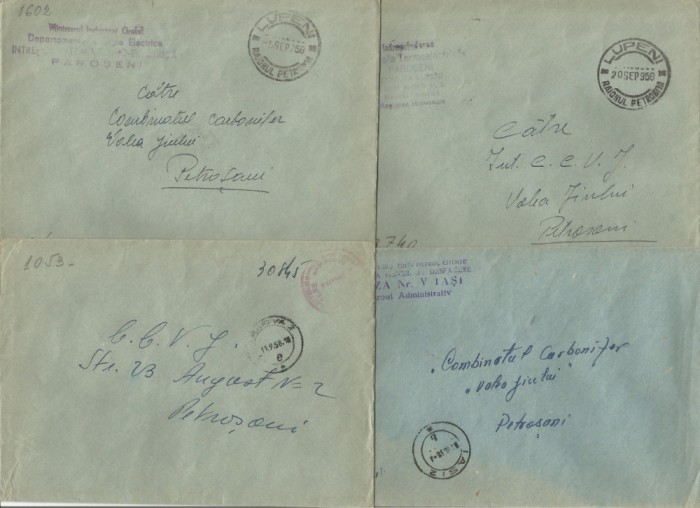 1602
Ministerul Industriei Grele
Departamentul Energiei Electrice
PAROȘENI
LUPENI
SEP 956
RAIONUL PETROȘANI
Către
Combinatul Carbonifer
Valea Jiului
Petroșani
Intreprinderea
PAROȘENI
LUPENI
20 SEP 956
RAIONUL PETROȘANI
Către
C. C. V. J.
Valea Jiului
Petroșani
1053-
30845
C. C. V. J.
Str. 23 August N= 2
Petroșani
ZA Nr. V IAȘI
Administrativ
Combinatul Carbonifer
"Valea Jiului"
Petroșani
IASI 2